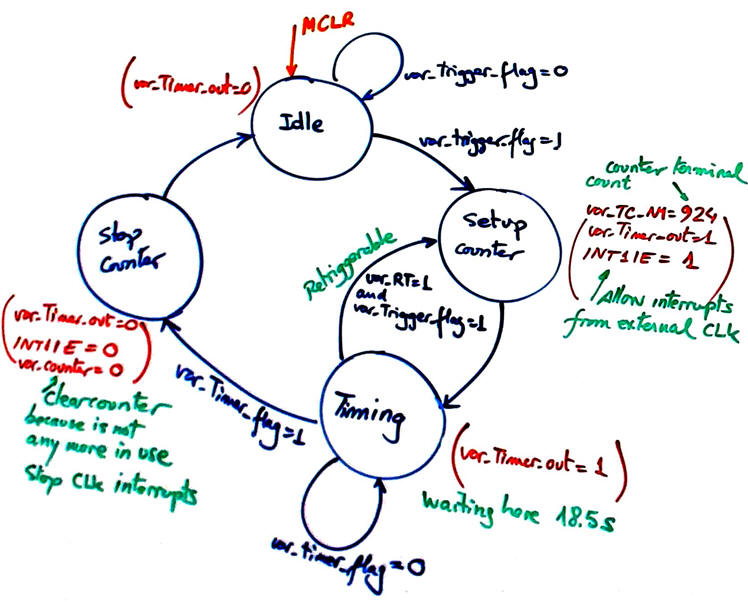 MCLR
var_Trigger_flag=0
(var_Timer_out=0)
Idle
var_trigger_flag=1
counter terminal
count
Setup
counter
var_TC_NM=924
var_Timer_out=1
INT1IE = 1
Allow interrupts
from external CLK
Stop
counter
Retriggerable
var_RT=1
and
var_Trigger_flag=1
var_Timer_out=0
INT1IE = 0
var_counter= 0
clearcounter
because is not
any more in use
Stop CLK interrupts
var_Timer_flag=1
Timing
(var_Timer_out= 1)
waiting here 18.5s
var_timer_flag=0